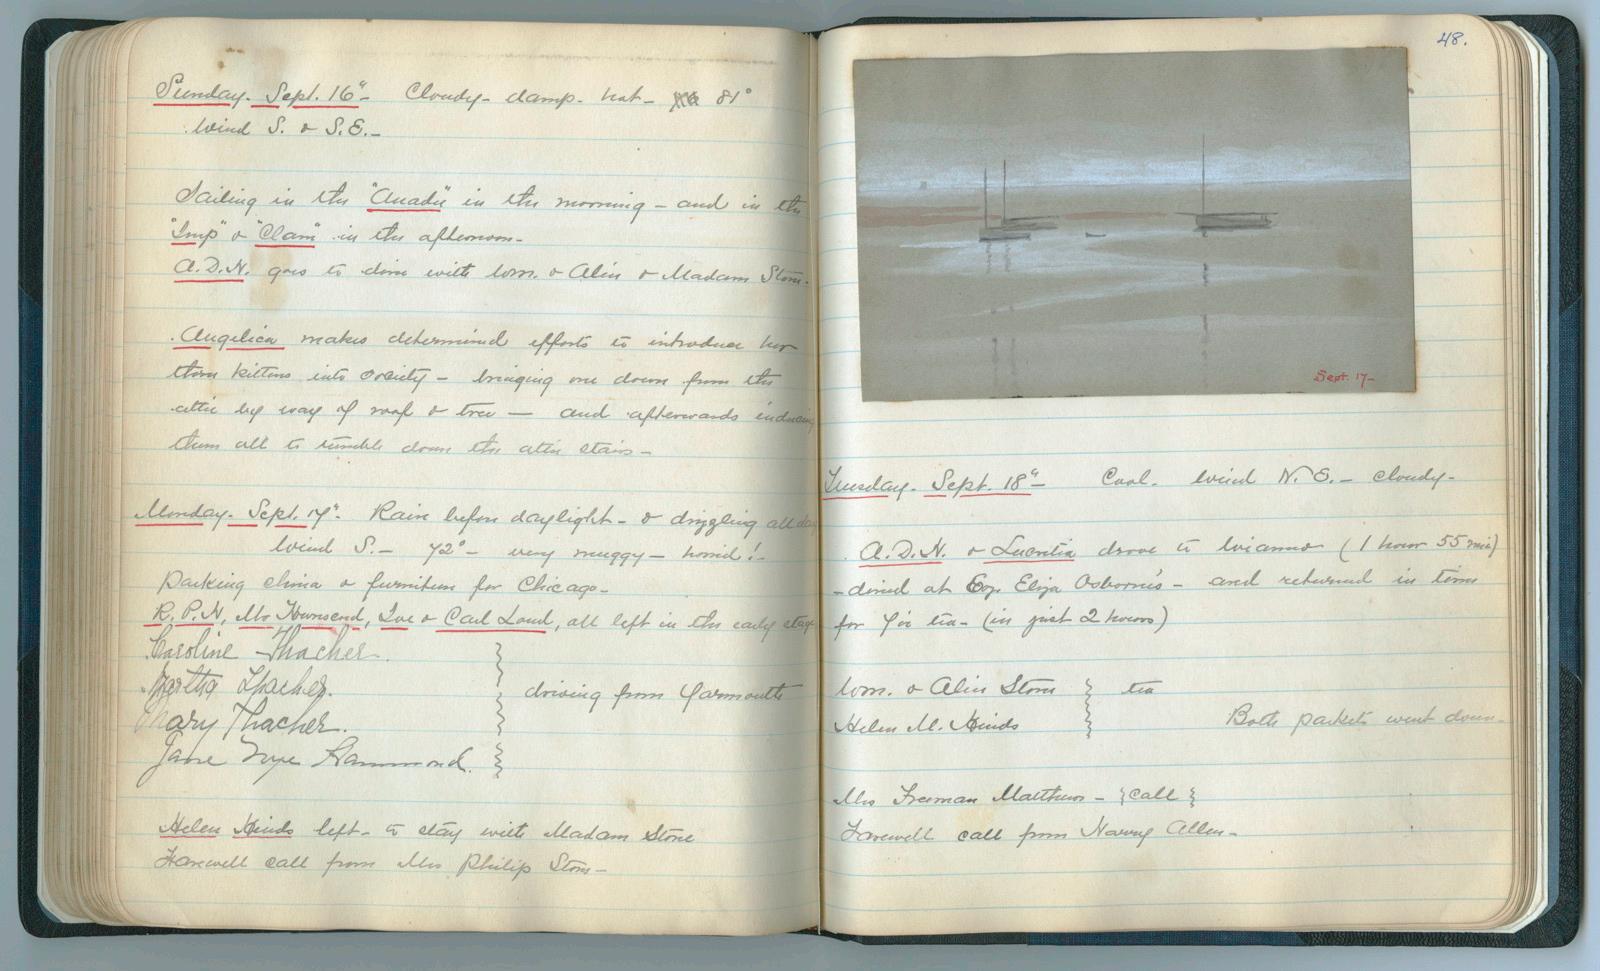 Sunday. Sept. 16"- Cloudy- damp- hot- 81°
Wind S. & S.E.-
Sailing in the "Anadu" in the morning - and in the
"Imp" & "Clam" in the afternoon-
A.D.N. goes to dine with Wm. & Alice & Madam Stone-
Angelica makes determined efforts to introduce her
three kittens into society - bringing one down from the
attic by way of roof & tree - and afterwards inducing
them all to tumble down the attic stairs-
Monday. Sept. 17"- Rain before daylight- & drizzling all day
Wind S.- 72°- very muggy- horrid!-
Packing china & furniture for Chicago-
R.P.N, Mr Townsend, & Carl Lond, all left in the early stage
Caroline Thacher.
Martha Thacher.
Mary Thacher.
driving from Yarmouth
Jane Nye Hammond.
Helen Hinds left- to stay with Madam Stone
Farewell call from Mrs Philip Stone-
48.
Sept. 17-
Tuesday. Sept. 18"- Cool. Wind N.E.- cloudy-
A.D.N. & Lucretia drove to Wianno (1 hour 55 min)
-dined at Eliza Osborne's- and returned in time
for tea- (in just 2 hours)
Wm. & Alice Stone
tea
Helen M. Hinds
Both packets went down-
Mrs Freeman Matthews- {call}
Farewell call from Harvey Allen-